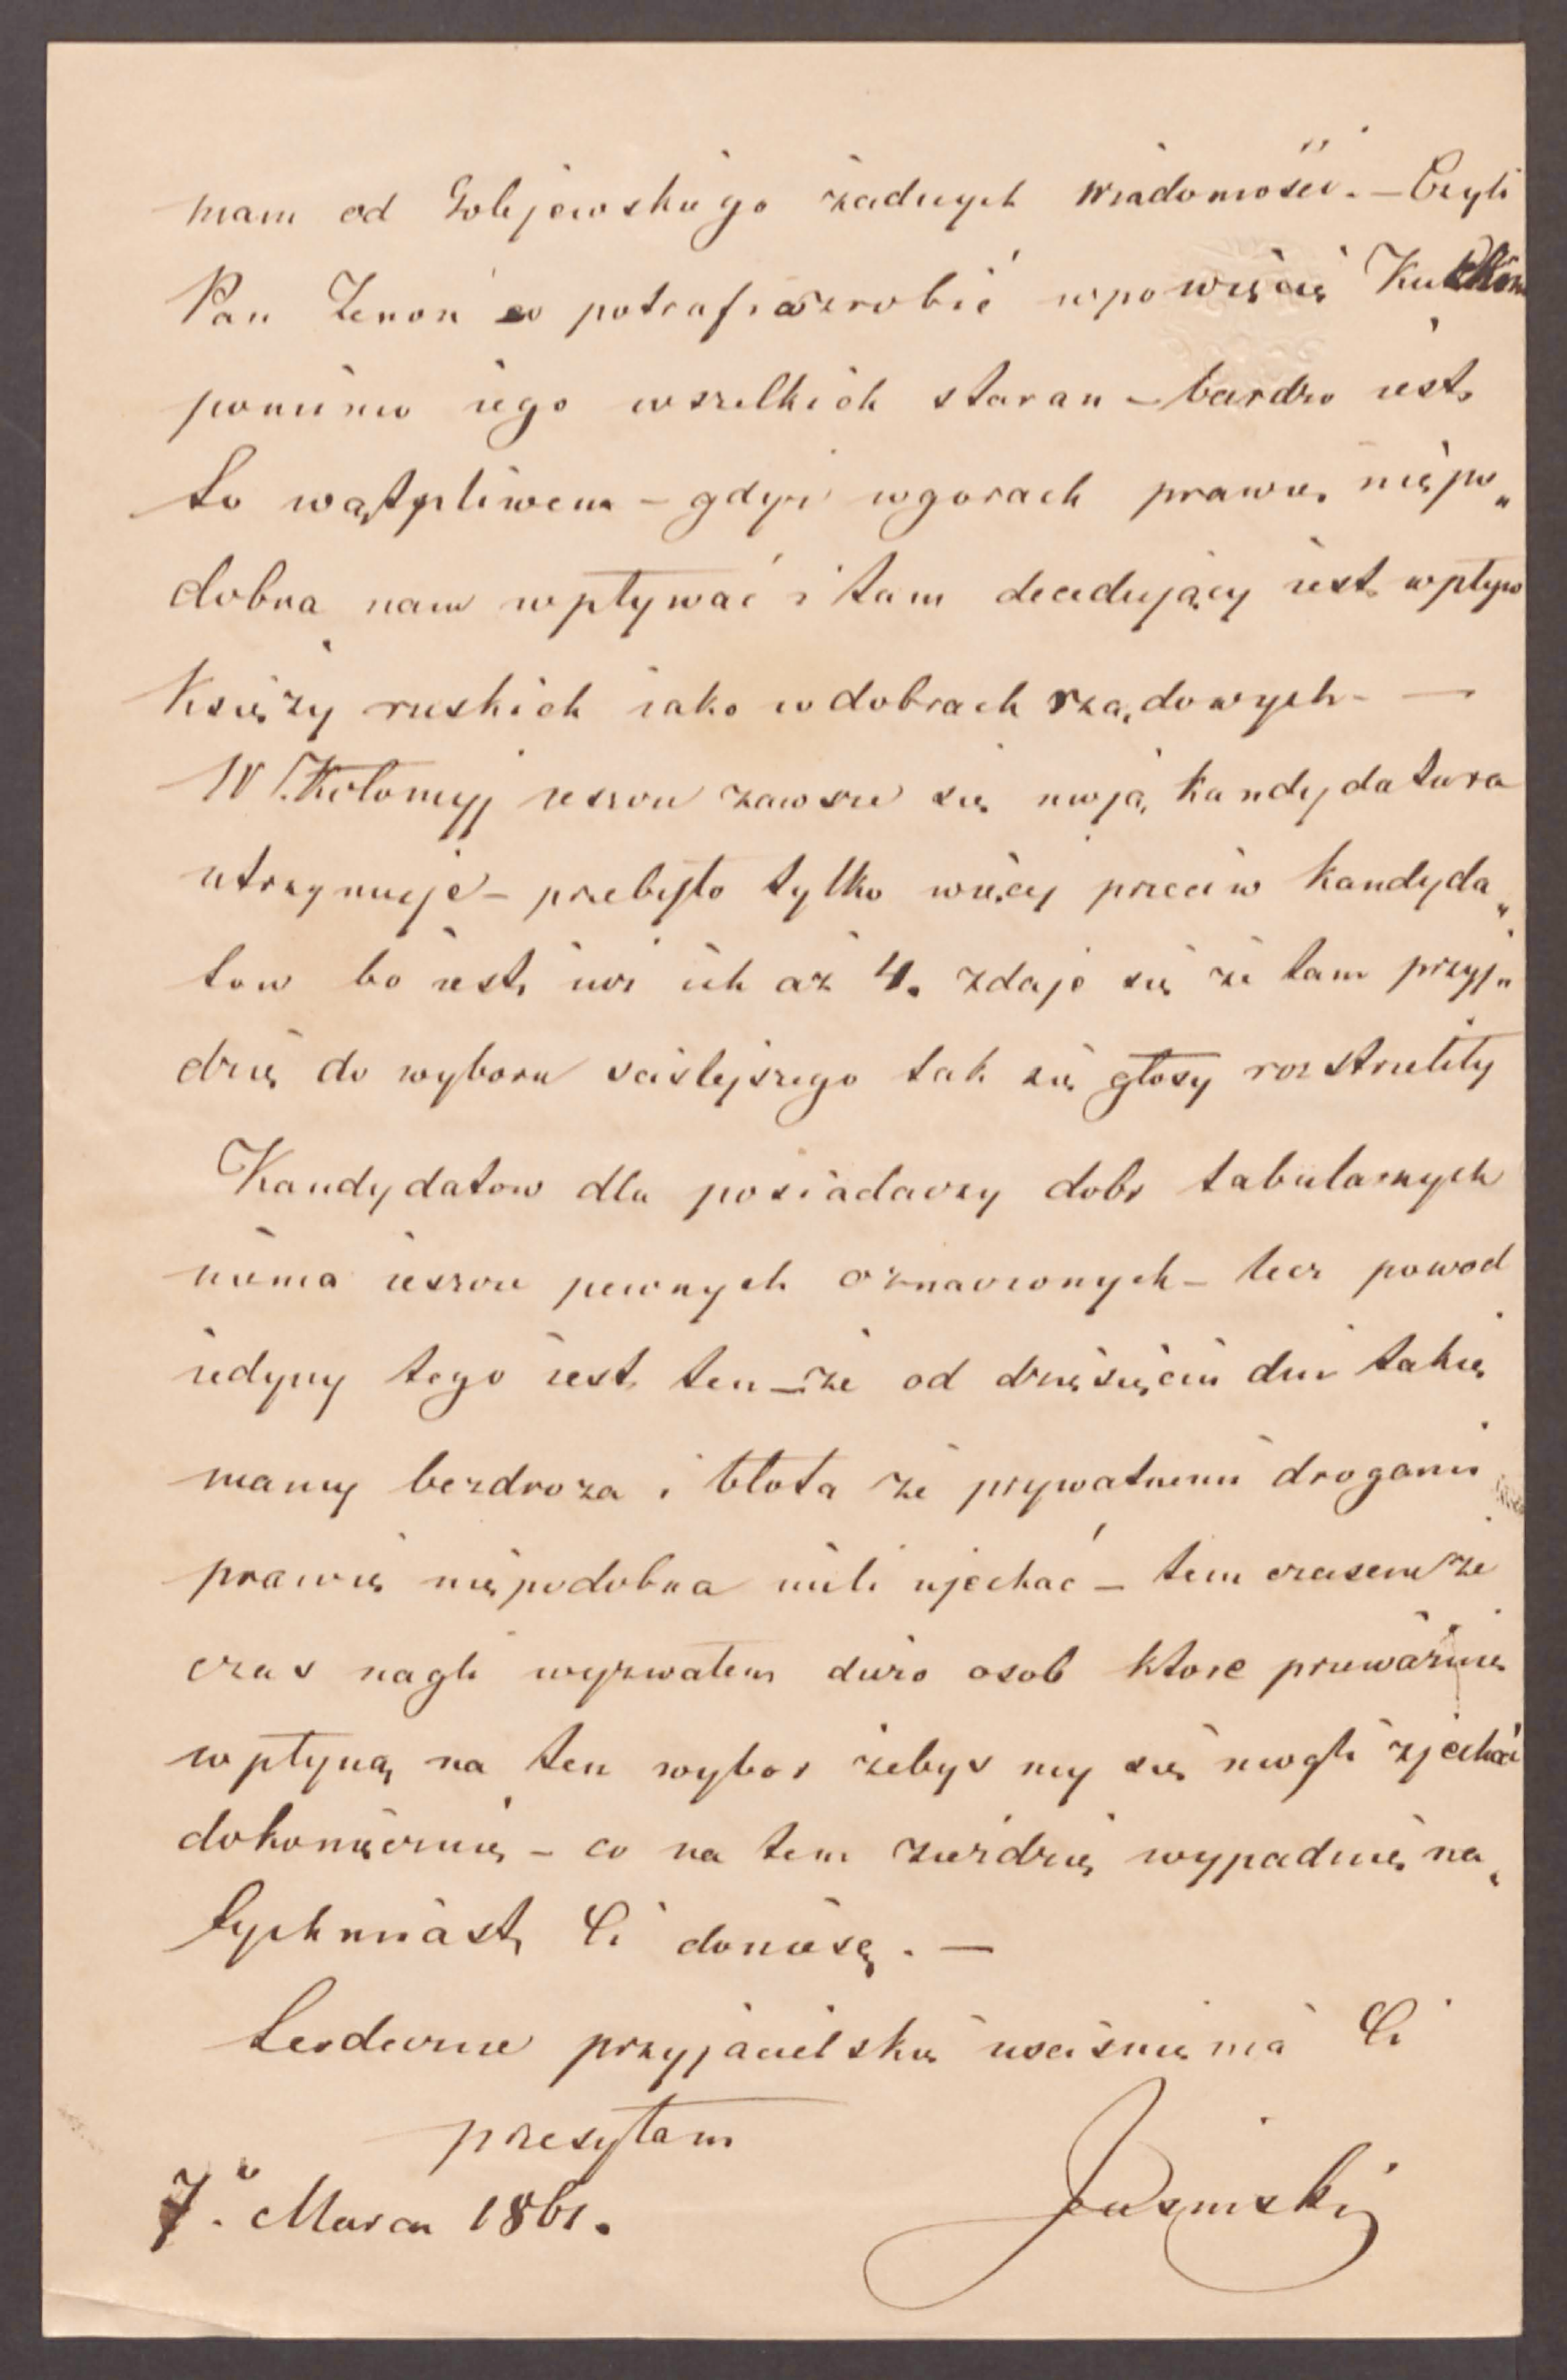 mam od Golejewskiego żadnych wiadomości. – Czyli
Pan Zenon co potrafi zrobić w powiecie
pomimo iego wszelkich staran – bardzo iest
to wątpliwem – gdyż w gorach prawie niepo„
dobna nam wpływać i tam decedujący iest wpływ
Księży ruskich iako w dobrach rządowych – —
W Kołomyj ieszcze zawsze się moja kandydatura
utrzymuje – przebyło tylko więcej przeciw kandyda„
tow bo iest iuż ich aż 4. zdaje się że tam przyj„
dzie do wyboru sciślejszego tak się głosy rozstrieliły
Kandydatow dla posiadaczy dobr tabularnych
niema ieszcze pewnych oznaczonych – lecz powod
iedyny tego iest ten – że od dziesięciu dni takie
mamy bezdroża i błota że prywatnemi drogami
prawie niepodobna mili ujechać – tem czasem że
czas nagli wyzwałem dużo osob ktore przeważnie
wpłyną na ten wybor żebys my się mogli zjechać
dokoniecznie – co na tem zieździe wypadnie na„
tychmiast Ci doniosę. —
Serdeczne przyjacielskie usciśnienia Ci
przesyłam
7. Marca 1861.